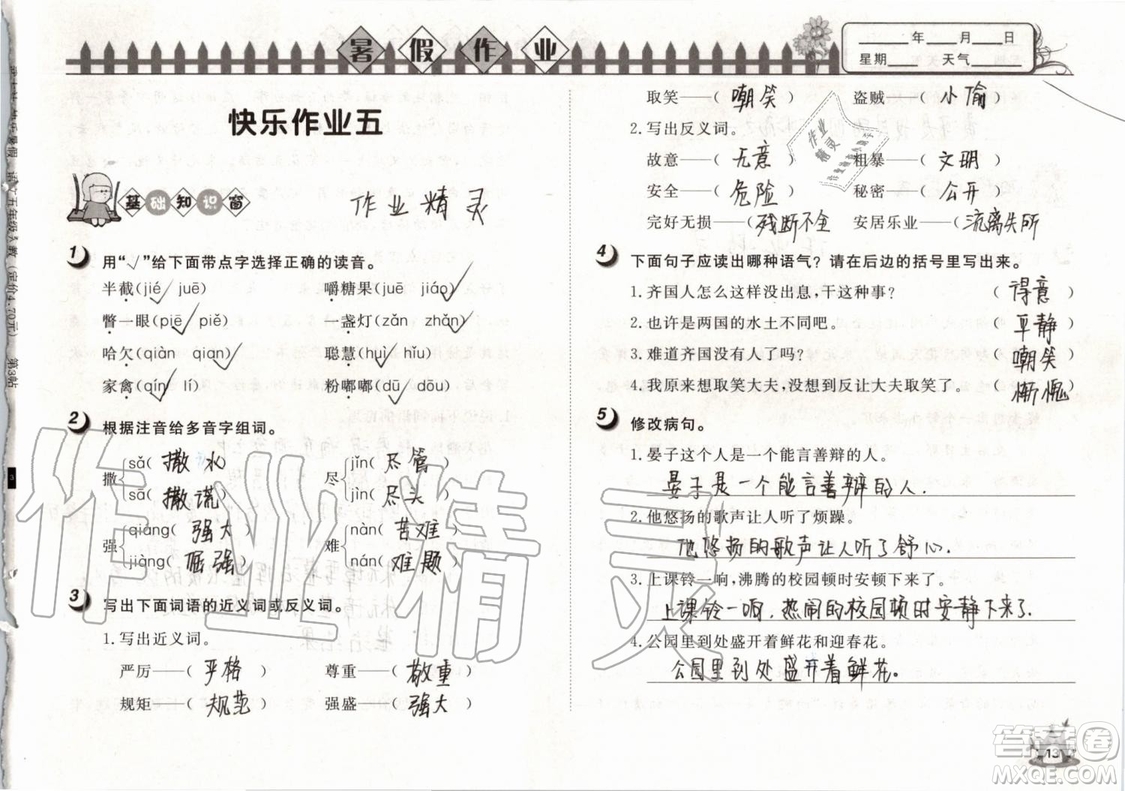 暑假作业
____年____月____日
星期____ 天气____
快乐作业五
基础知识窗
作业精灵
1 用“√”给下面带点字选择正确的读音。
半截(jié√ juē) 嚼糖果(juē jiáo√)
瞥一眼(piē√ piě) 一盏灯(zǎn zhǎn√)
哈欠(qiàn qian√) 聪慧(huì√ hǔi)
家禽(qín√ lí) 粉嘟嘟(dū√ dōu)
2 根据注音给多音字组词。
撒 sǎ(撒水) 尽 jǐn(尽管)
sā(撒谎) jìn(尽头)
强 qiáng(强大) 难 nàn(苦难)
jiàng(倔强) nán(难题)
3 写出下面词语的近义词或反义词。
1.写出近义词。
严厉——(严格) 尊重——(敬重)
规矩——(规范) 强盛——(强大)
取笑——(嘲笑) 盗贼——(小偷)
2.写出反义词。
故意——(无意) 粗暴——(文明)
安全——(危险) 秘密——(公开)
完好无损——(残断不全) 安居乐业——(流离失所)
4 下面句子应读出哪种语气？请在后边的括号里写出来。
1.齐国人怎么这样没出息,干这种事? (得意)
2.也许是两国的水土不同吧。 (平静)
3.难道齐国没有人了吗? (嘲笑)
4.我原来想取笑大夫,没想到反让大夫取笑了。 (惭愧)
5 修改病句。
1.晏子这个人是一个能言善辩的人。
晏子是一个能言善辩的人.
2.他悠扬的歌声让人听了烦躁。
他悠扬的歌声让人听了舒心.
3.上课铃一响,沸腾的校园顿时安顿下来。
上课铃一响,热闹的校园顿时安静下来了.
4.公园里到处盛开着鲜花和迎春花。
公园里到处盛开着鲜花。
13
作业精灵
答案圈
MXQE.COM